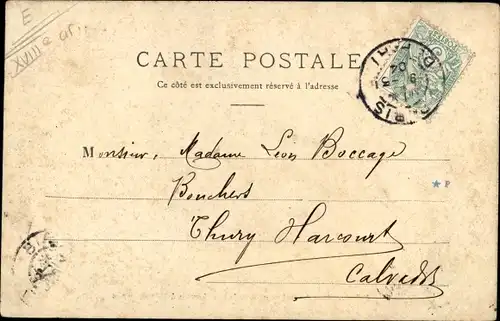 E
XVIIIe arr
CARTE POSTALE
Ce côté est exclusivement réservé à l'adresse
PARIS
Monsieur, Madame Léon Boccage
Bouchers
Thury Harcourt
Calvados
P